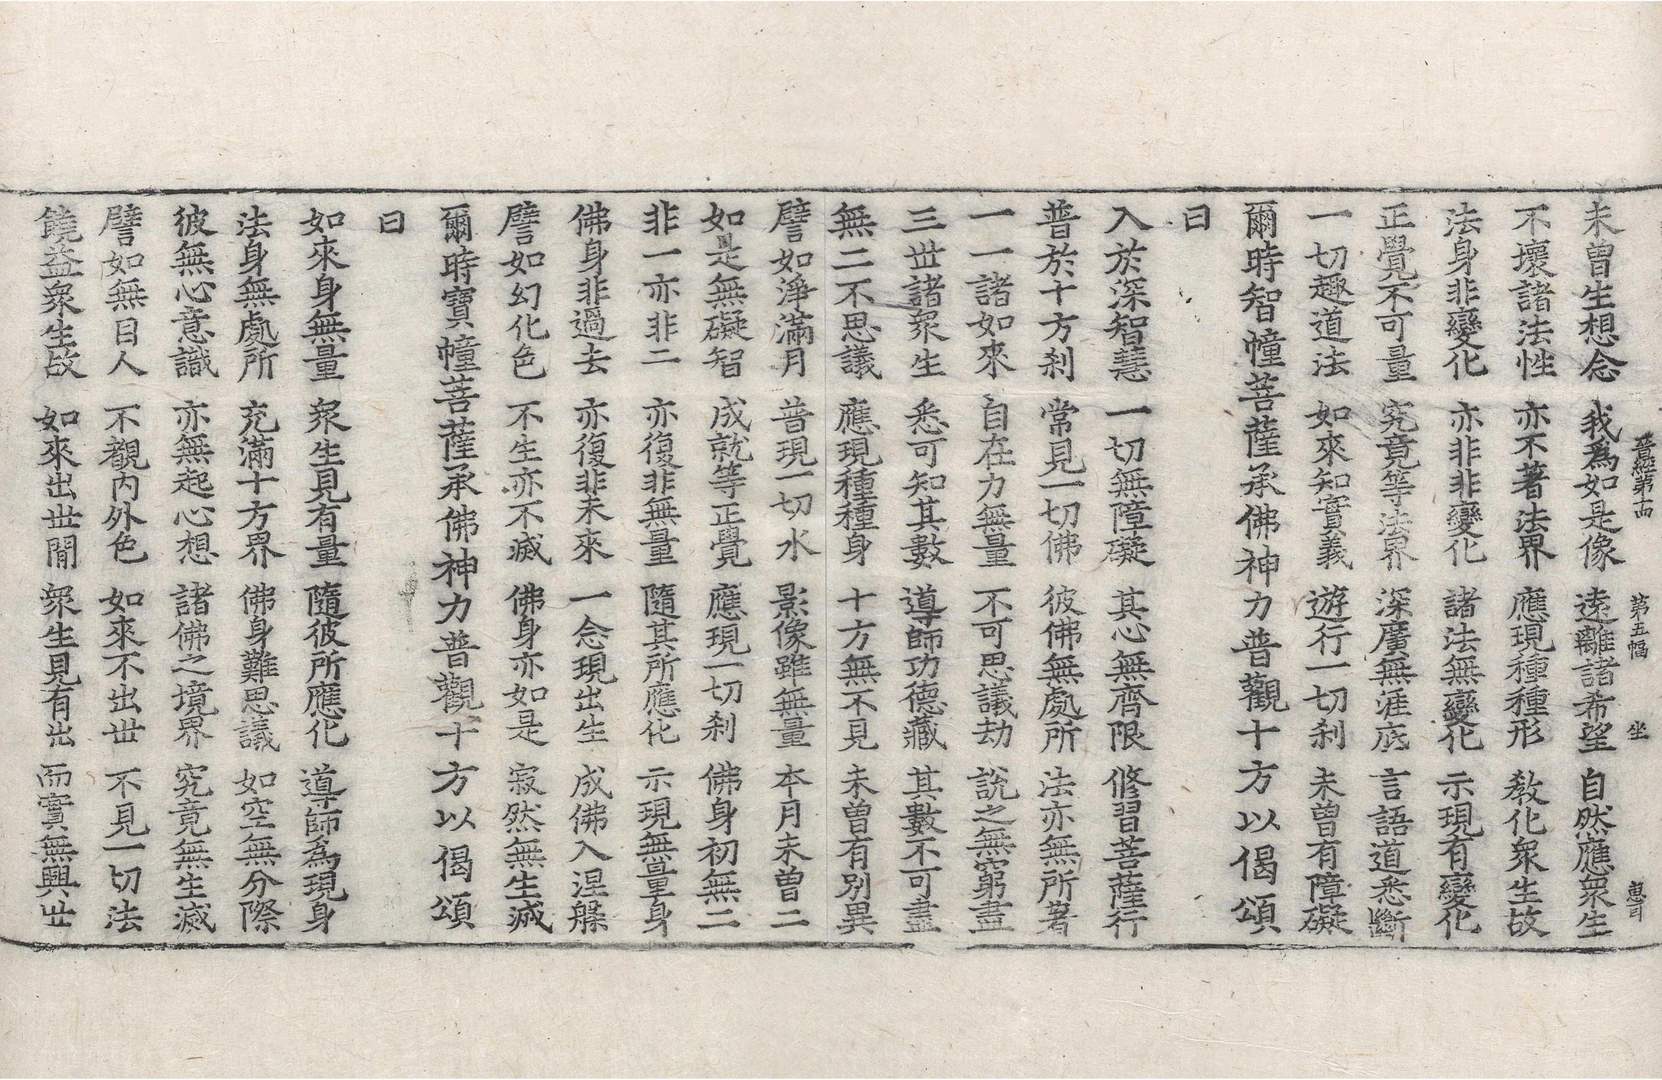 晉經第十四 第五幅 坐 惠司
未曾生想念 我為如是像 遠離諸希望 自然應眾生
不壞諸法性 亦不著法界 應現種種形 教化眾生故
法身非變化 亦非非變化 諸法無變化 示現有變化
正覺不可量 究竟等法界 深廣無涯底 言語道悉斷
一切趣道法 如來知實義 遊行一切剎 未曾有障礙
爾時智幢菩薩承佛神力普觀十方以偈頌
曰
入於深智慧 一切無障礙 其心無齊限 修習菩薩行
普於十方剎 常見一切佛 彼佛無處所 法亦無所著
一一諸如來 自在力無量 不可思議劫 說之無窮盡
三世諸眾生 悉可知其數 導師功德藏 其數不可盡
無二不思議 應現種種身 十方無不見 未曾有別異
譬如淨滿月 普現一切水 影像雖無量 本月未曾二
如是無礙智 成就等正覺 應現一切剎 佛身初無二
非一亦非二 亦復非無量 隨其所應化 示現無量身
佛身非過去 亦復非未來 一念現出生 成佛入涅槃
譬如幻化色 不生亦不滅 佛身亦如是 寂然無生滅
爾時寶幢菩薩承佛神力普觀十方以偈頌
曰
如來身無量 眾生見有量 隨彼所應化 導師為現身
法身無處所 充滿十方界 佛身難思議 如空無分際
彼無心意識 亦無起心想 諸佛之境界 究竟無生滅
譬如無目人 不覩內外色 如來不出世 不見一切法
饒益眾生故 如來出世間 眾生見有出 而實無興世